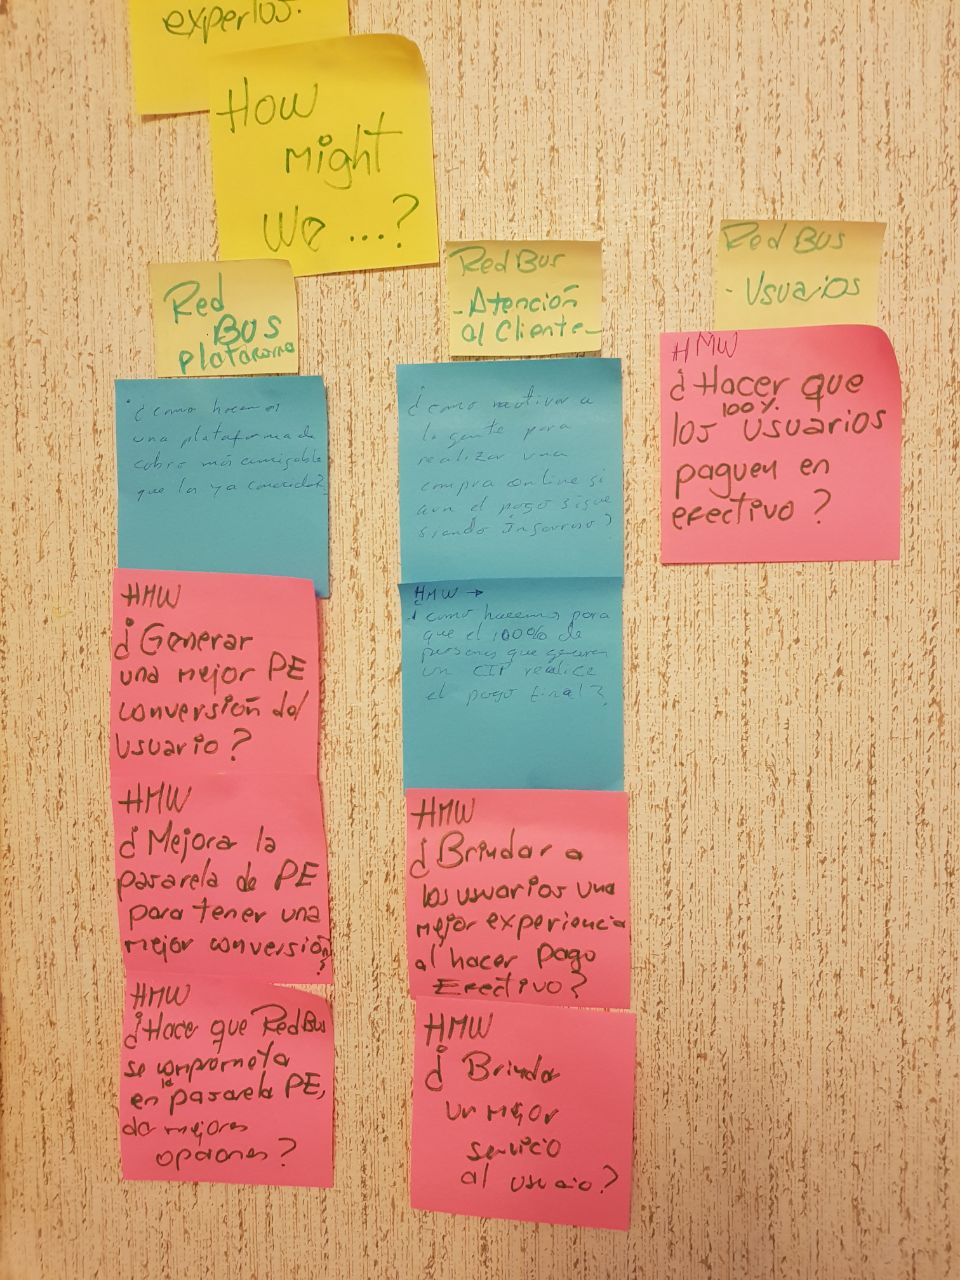 expertos.
How
might
We ...?
Red
BUS
plataforma
¿como hacemos
una plataforma de
cobro más amigable
que las ya conocidas
HMW
¿Generar
una mejor PE
conversión del
usuario?
HMW
¿Mejora la
pasarela de PE
para tener una
mejor conversión
?
HMW
¿Hace que RedBus
se comprometa
en la pasarela PE,
da mejores
opciones?
Red Bus
- Atención
al Cliente -
¿como motivar a
la gente para
realizar una
compra online si
aun el pago sigue
siendo
HMW →
¿como hacemos para
que el 100% de
personas que generan
un CIP realice
el pago final?
HMW
¿Brindar a
los usuarios una
mejor experiencia
al hacer Pago
Efectivo?
HMW
¿Brindar
un mejor
servicio
al usuaio?
Red Bus
- Usuarios
HMW
¿Hacer que
los 100% usuarios
paguen en
efectivo?